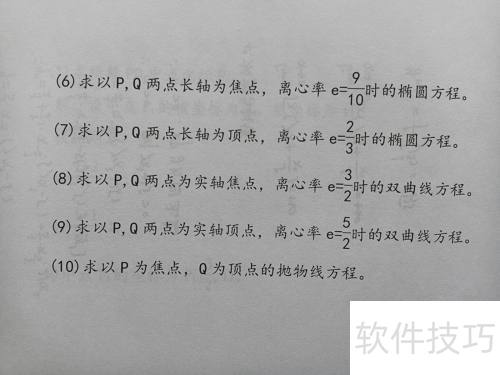 (6)求以P,Q两点长轴为焦点，离心率e=9/10时的椭圆方程。
(7)求以P,Q两点长轴为顶点，离心率e=2/3时的椭圆方程。
(8)求以P,Q两点为实轴焦点，离心率e=3/2时的双曲线方程。
(9)求以P,Q两点为实轴顶点，离心率e=5/2时的双曲线方程。
(10)求以P为焦点，Q为顶点的抛物线方程。
软件技巧